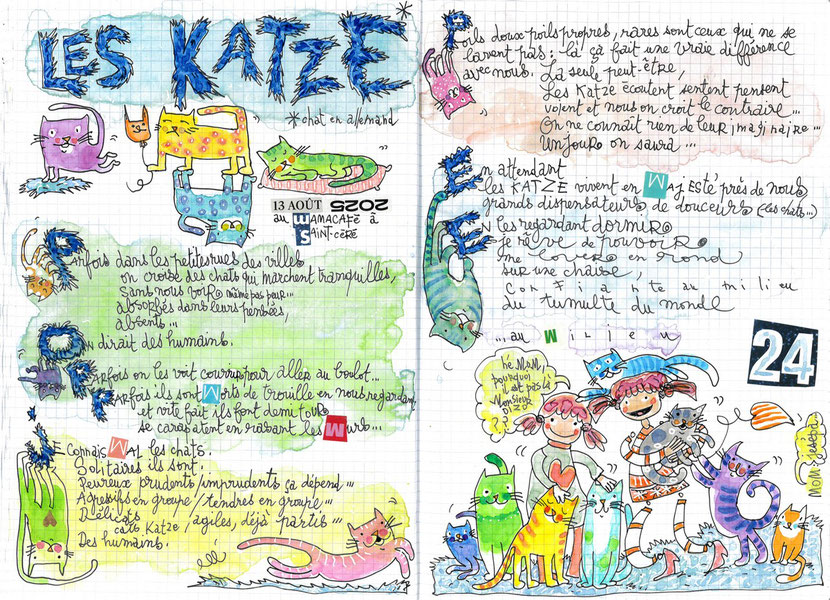 LES KATZE*
*chat en allemand
13 AOÛT 2025
au MAMACAFÉ à
SAINT-CÉRÉ
Parfois dans les petites rues des villes
on croise des chats qui marchent tranquilles,
sans nous voir même pas peur...
absorbés dans leurs pensées,
absents...
On dirait des humains.
Parfois on les voit courrir pour aller au boulot...
Parfois ils sont Morts de trouille en nous regardant
et vite fait ils font demi tour
se carapatent en rasant les Murs...
Je connais Mal les chats.
Solitaires ils sont.
Peureux prudents/imprudents ça dépend...
Agressifs en groupe/tendres en groupe...
Délicats
cats Katze/agiles, déjà partis...
Des humains.
Poils doux poils propres, rares sont ceux qui ne se
lavent pas : là ça fait une vraie différence
avec nous. La seule peut-être,
Les Katze écoutent sentent pensent
voient et nous on croit le contraire...
On ne connaît rien de leur imaginaire...
Un jour on saura...
En attendant
les KATZE vivent en MAJESTÉ près de nous
grands dispensateurs de douceurs (les chats...
En les regardant dormir
je rêve de pouvoir
me lover en rond
sur une chaise,
confiante au milieu
du tumulte du monde
...au Milieu
24
hé MoM,
pourquoi
il est pas là
Monsieur
OIZO
???
MoM jestéba...